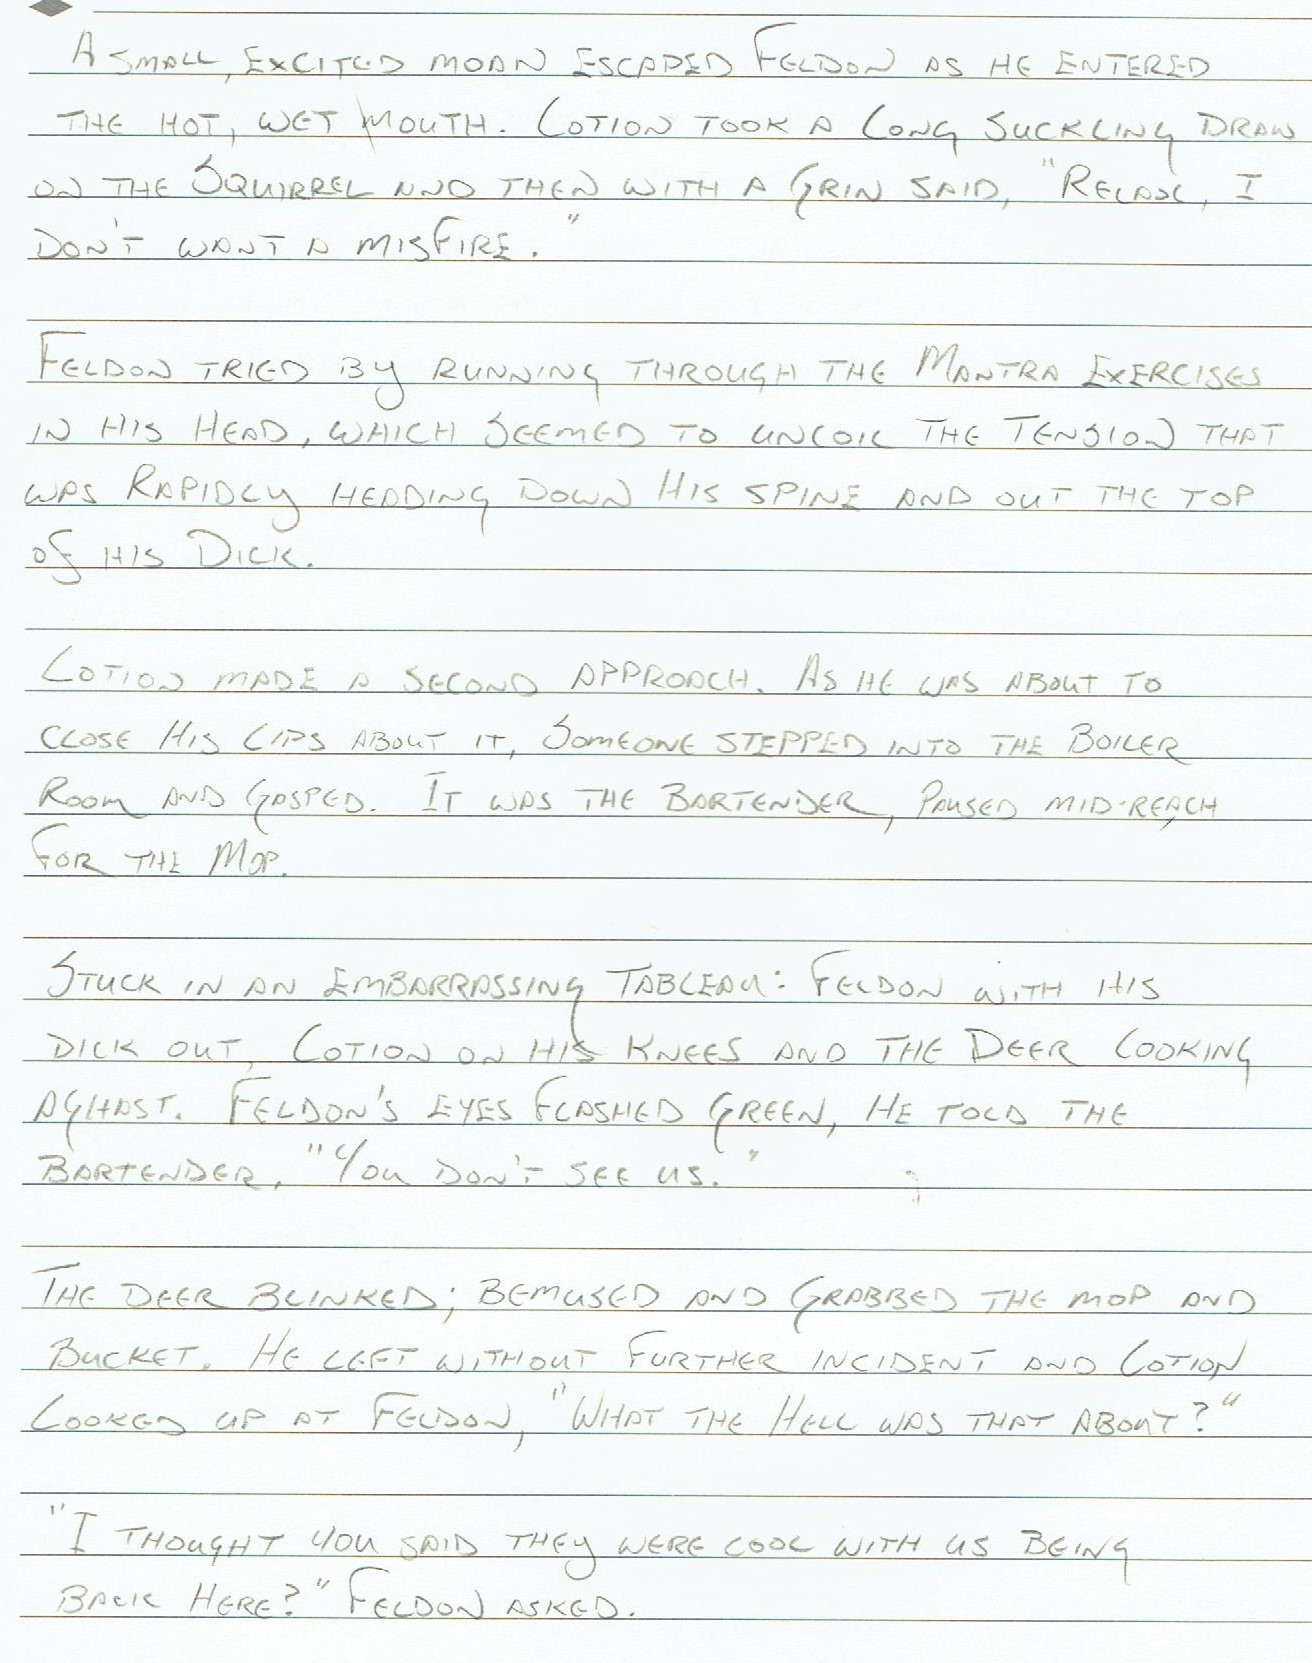 A small, excited moan escaped Feldon as he entered
the hot, wet mouth. Lotion took a long suckling draw
on the squirrel and then with a grin said, "Relax, I
don't want a misfire."
Feldon tried by running through the Mantra Exercises
in his head, which seemed to uncoil the tension that
was rapidly heading down his spine and out the top
of his dick.
Lotion made a second approach. As he was about to
close his lips about it, someone stepped into the boiler
room and gasped. It was the bartender, paused mid-reach
for the mop.
Stuck in an embarrassing tableau: Feldon with his
dick out, Lotion on his knees and the deer looking
aghast. Feldon's eyes flashed green, he told the
bartender, "You don't see us."
The deer blinked; bemused and grabbed the mop and
bucket. He left without further incident and Lotion
looked up at Feldon, "What the hell was that about?"
"I thought you said they were cool with us being
back here?" Feldon asked.